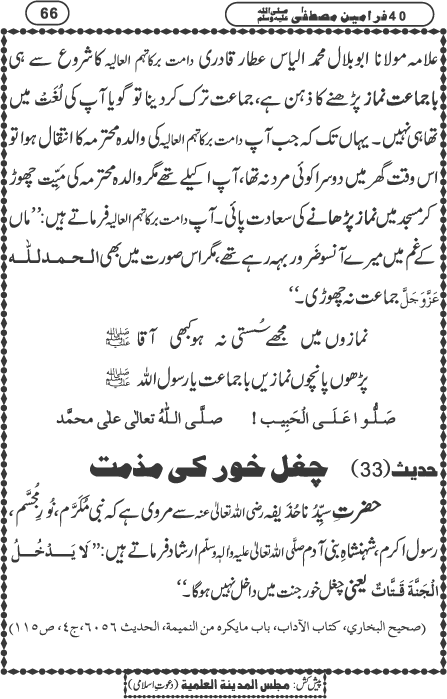 40 فرامینِ مصطفٰی صلی اللہ علیہ وسلم
66
علامہ مولانا ابو بلال محمد الیاس عطار قادری دامت برکاتہم العالیہ کا شروع سے ہی
باجماعت نماز پڑھنے کا ذہن ہے، جماعت ترک کردینا تو گویا آپ کی لُغَت میں
تھا ہی نہیں۔ یہاں تک کہ جب آپ دامت برکاتہم العالیہ کی والدہ محترمہ کا انتقال ہوا تو
اس وقت گھر میں دوسرا کوئی مرد نہ تھا، آپ اکیلے تھے مگر والدہ محترمہ کی میّت چھوڑ
کر مسجد میں نماز پڑھانے کی سعادت پائی۔ آپ دامت برکاتہم العالیہ فرماتے ہیں: ’’ماں
کے غم میں میرے آنسو ضَرور بہہ رہے تھے، مگر اس صورت میں بھی الحمدللّٰه
عَزَّوَجَلَّ جماعت نہ چھوڑی۔‘‘
نمازوں میں مجھے سُستی نہ ہو کبھی آقا ﷺ
پڑھوں پانچوں نمازیں باجماعت یا رسول اللہ ﷺ
صَلُّوا عَلَی الْحَبِیب! صلَّی اللّٰہُ تعالٰی علٰی محمَّد
حدیث (33) چغل خور کی مذمت
حضرتِ سیِّدُنا حُذَیفہ رضی اللہ تعالیٰ عنہ سے مروی ہے کہ نبیِ مُکَرَّم، نُورِ مُجَسَّم،
رسولِ اکرم، شہنشاہِ بنی آدم صلَّی اللہ تعالیٰ علیہ والہٖ وسلَّم ارشاد فرماتے ہیں: ’’لَا یَدْخُلُ
الْجَنَّةَ قَتَّاتٌ یعنی چغل خور جنت میں داخل نہیں ہوگا۔‘‘
(صحیح البخاري، کتاب الآداب، باب مایکره من النمیمة، الحدیث ٦٠٥٦، ج٤، ص١١٥)
پیش کش: مجلس المدینۃ العلمیۃ (دعوتِ اسلامی)